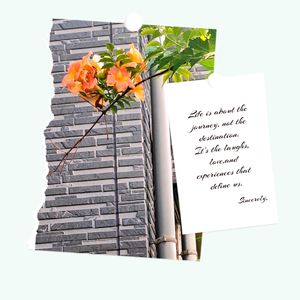 Life is about the
journey, not the
destination.
It's the laughs,
love,and
experiences that
define us.
Sincerely,